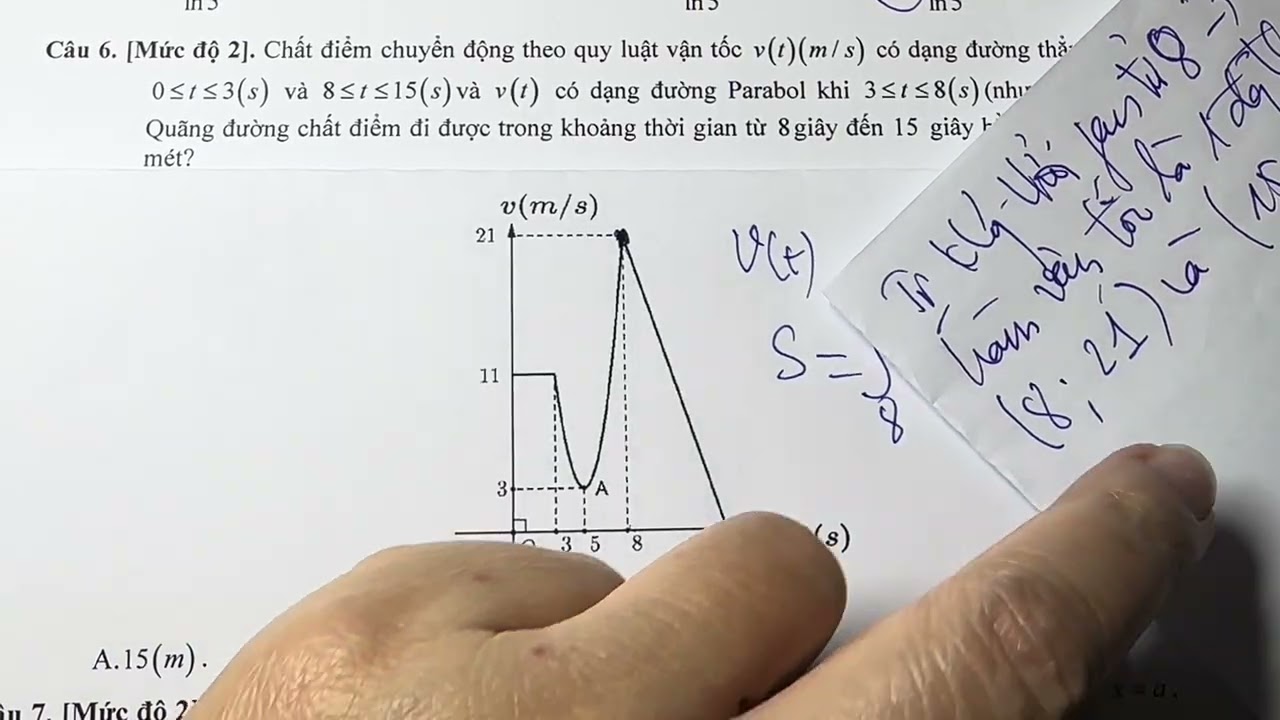 ln 5 ln 5 ln 5
Câu 6. [Mức độ 2]. Chất điểm chuyển động theo quy luật vận tốc v(t)(m/s) có dạng đường
0≤t≤3(s) và 8≤t≤15(s) và v(t) có dạng đường Parabol khi 3≤t≤8(s)
Quãng đường chất điểm đi được trong khoảng thời gian từ 8 giây đến 15 giây
mét?
v(m/s)
21
11
3
A
3 5 8
(s)
V(t)
S = ∫
8
từ 8
hàm vận tốc là 1
(8; 21) và (
A.15(m).
7. [Mức độ 2]
x = a.